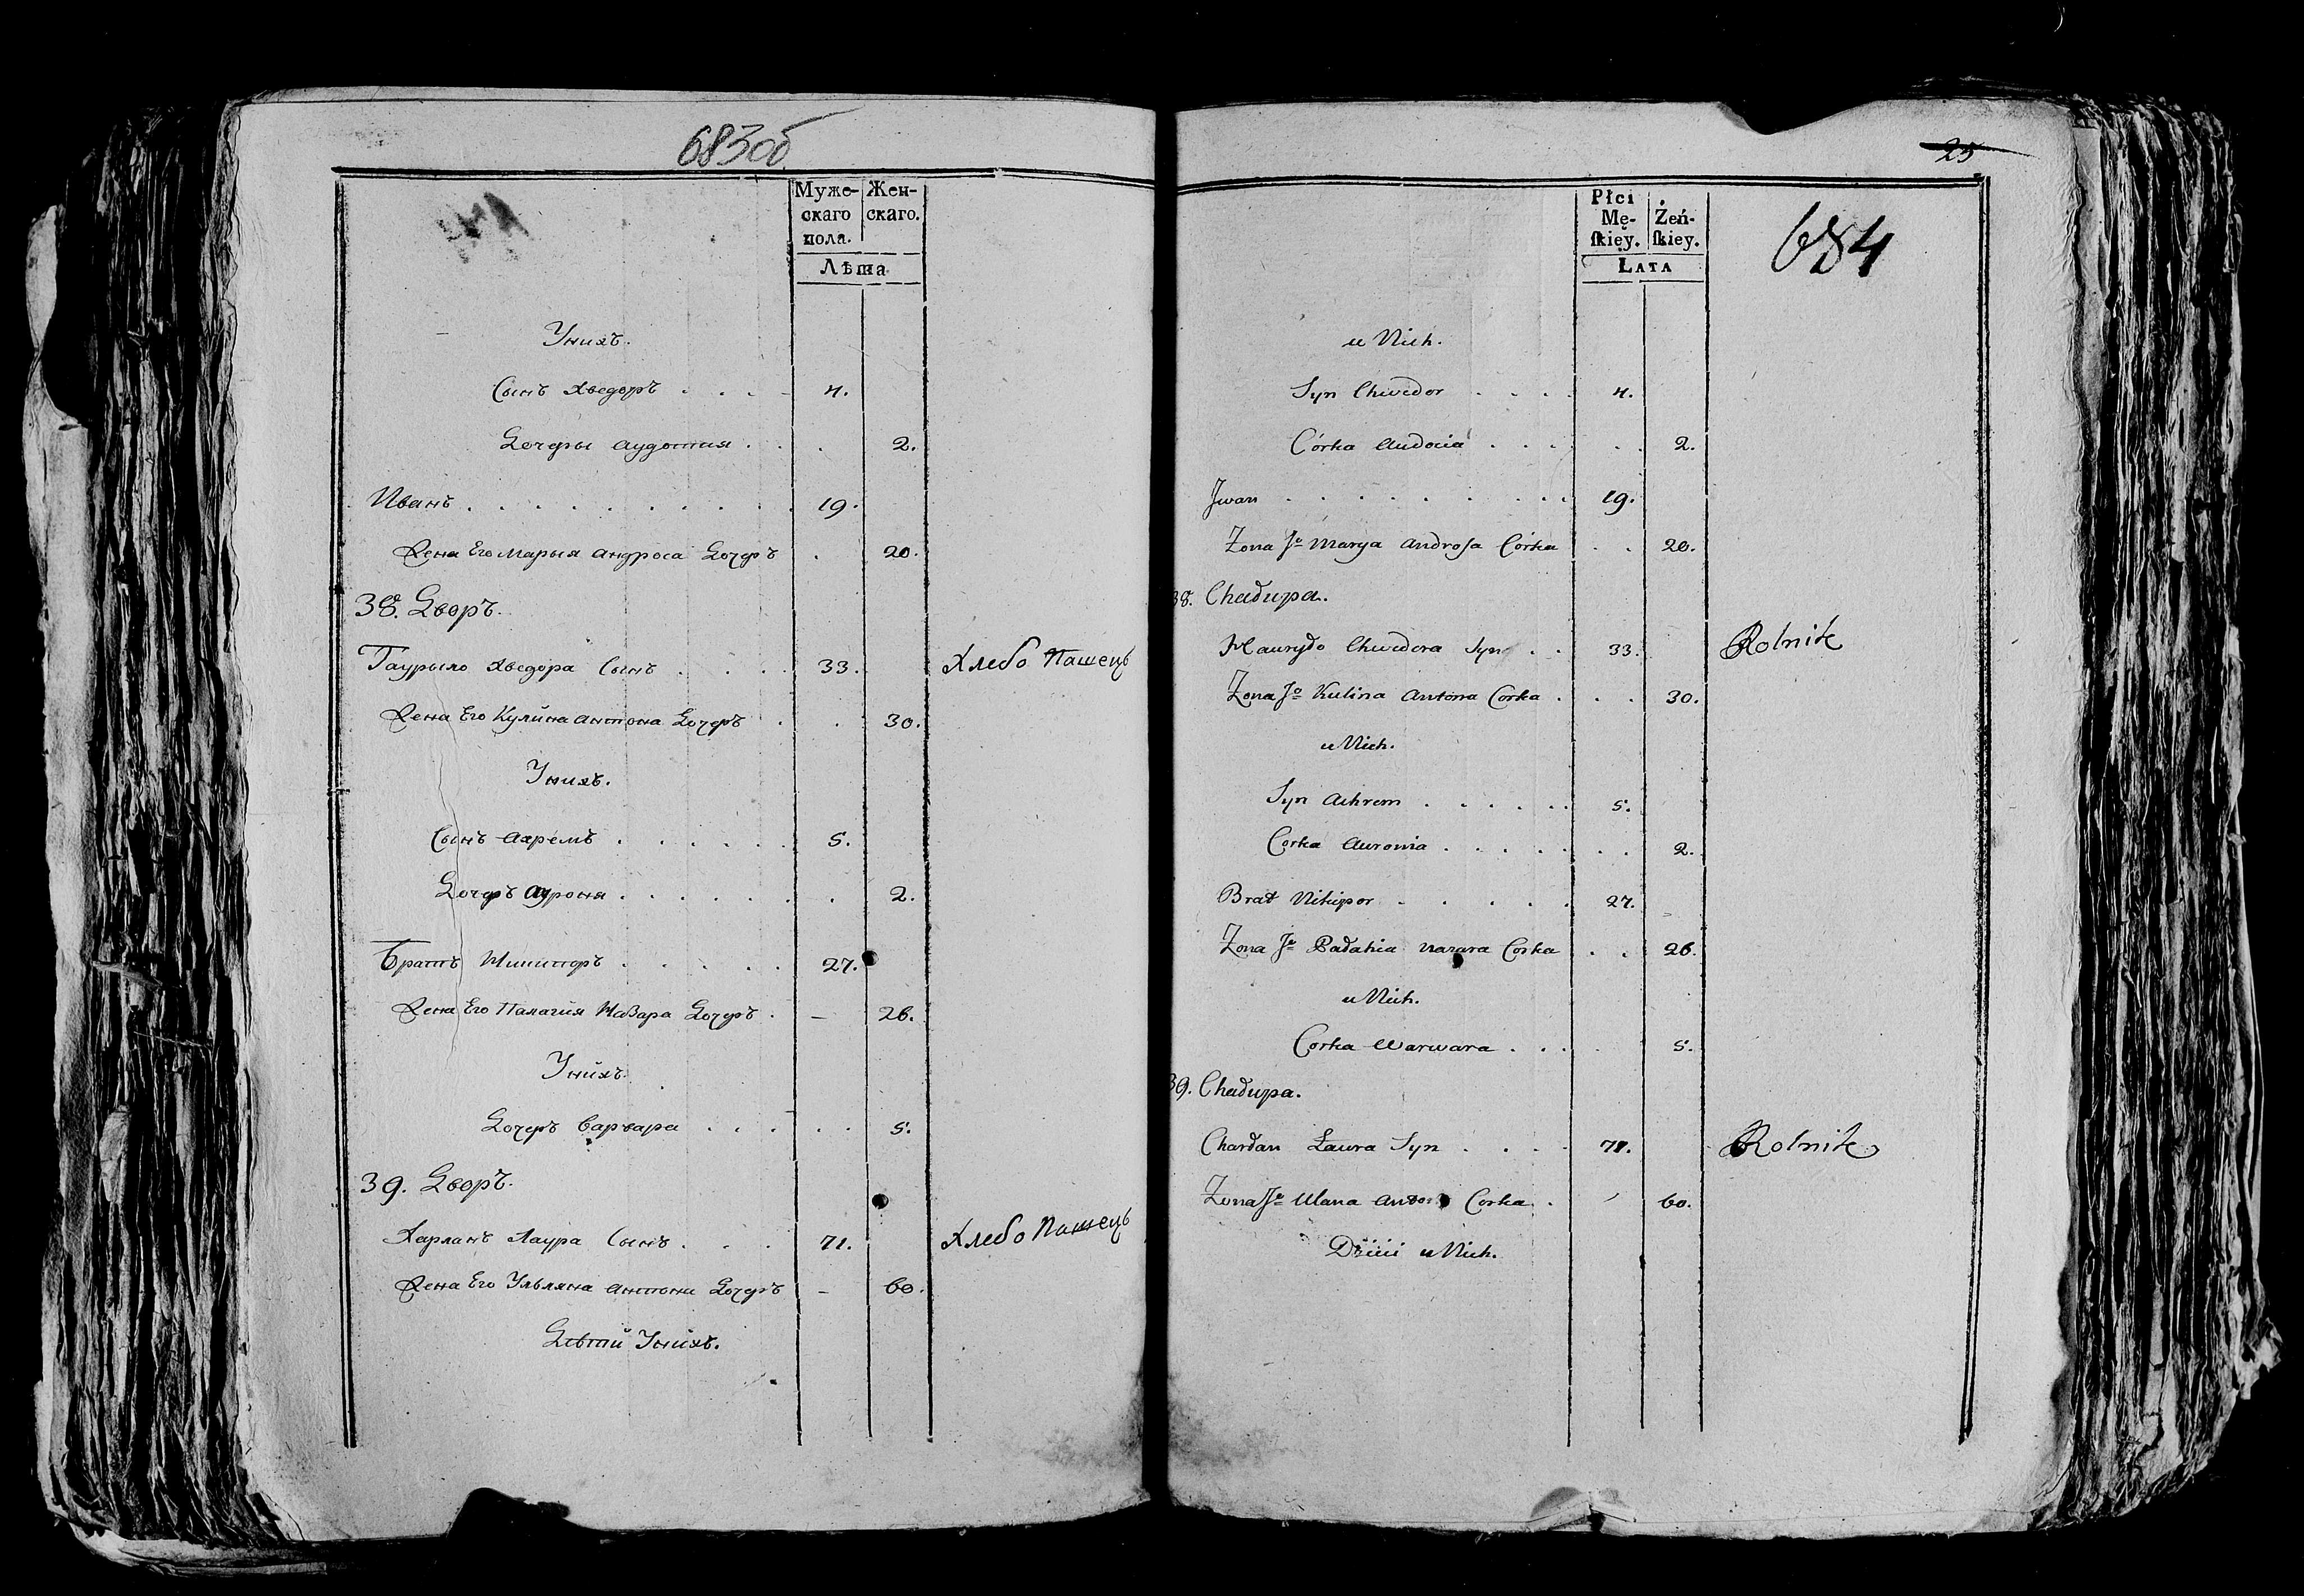 683об
Муже- Жен-
скаго скаго.
пола.
Лѣта
Унихъ.
Сынъ Хведоръ . . . . 4.
Дочеры Аудотия . . . 2.
Иванъ . . . . . . . . . 19.
Жена Его Марыя Андроса Дочеръ . 20.
38. Дворъ.
Гаурыло Хведора Сынъ . . . 33. Хлебо Пашець
Жена Его Кулина Антона Дочеръ . . 30.
Унихъ.
Сынъ Ахремъ . . . . . 5.
Дочеръ Ауроня . . . . . . 2.
Братъ Никипоръ . . . . . 27.
Жена Его Палагия Назара Дочеръ . – 26.
Унихъ.
Дочеръ Варвара . . . . . 5.
39. Дворъ.
Харланъ Лаура Сынъ . . . 71. Хлебо Пашець
Жена Его Ульляна Антони Дочеръ – 60.
Дѣтти Унихъ.
25
Płci
Mę- Żeń-
ſkiey. ſkiey.
Lata
684
u Nich.
Syn Chwedor . . . . 4.
Córka Audocia . . . . . 2.
Jwan . . . . . . . . . 19.
Zona Jo Marya Androſa Córka . . 20.
38. Chałupa.
Hauryło Chwedora Syn . . 33. Rolnik
Zona Jo Kulina Antona Corka . . . 30.
u Nich.
Syn Achrem . . . . . 5.
Corka Auronia . . . . . . . 2.
Brat Nikipor . . . . . 27.
Zona Jo Pałahia Nazara Corka . . 26.
u Nich.
Corka Warwara . . . . 5.
39. Chałupa.
Charłan Ławra Syn . . . . 71. Rolnik
Zona Jo Ulana Corka . 60.
u Nich.